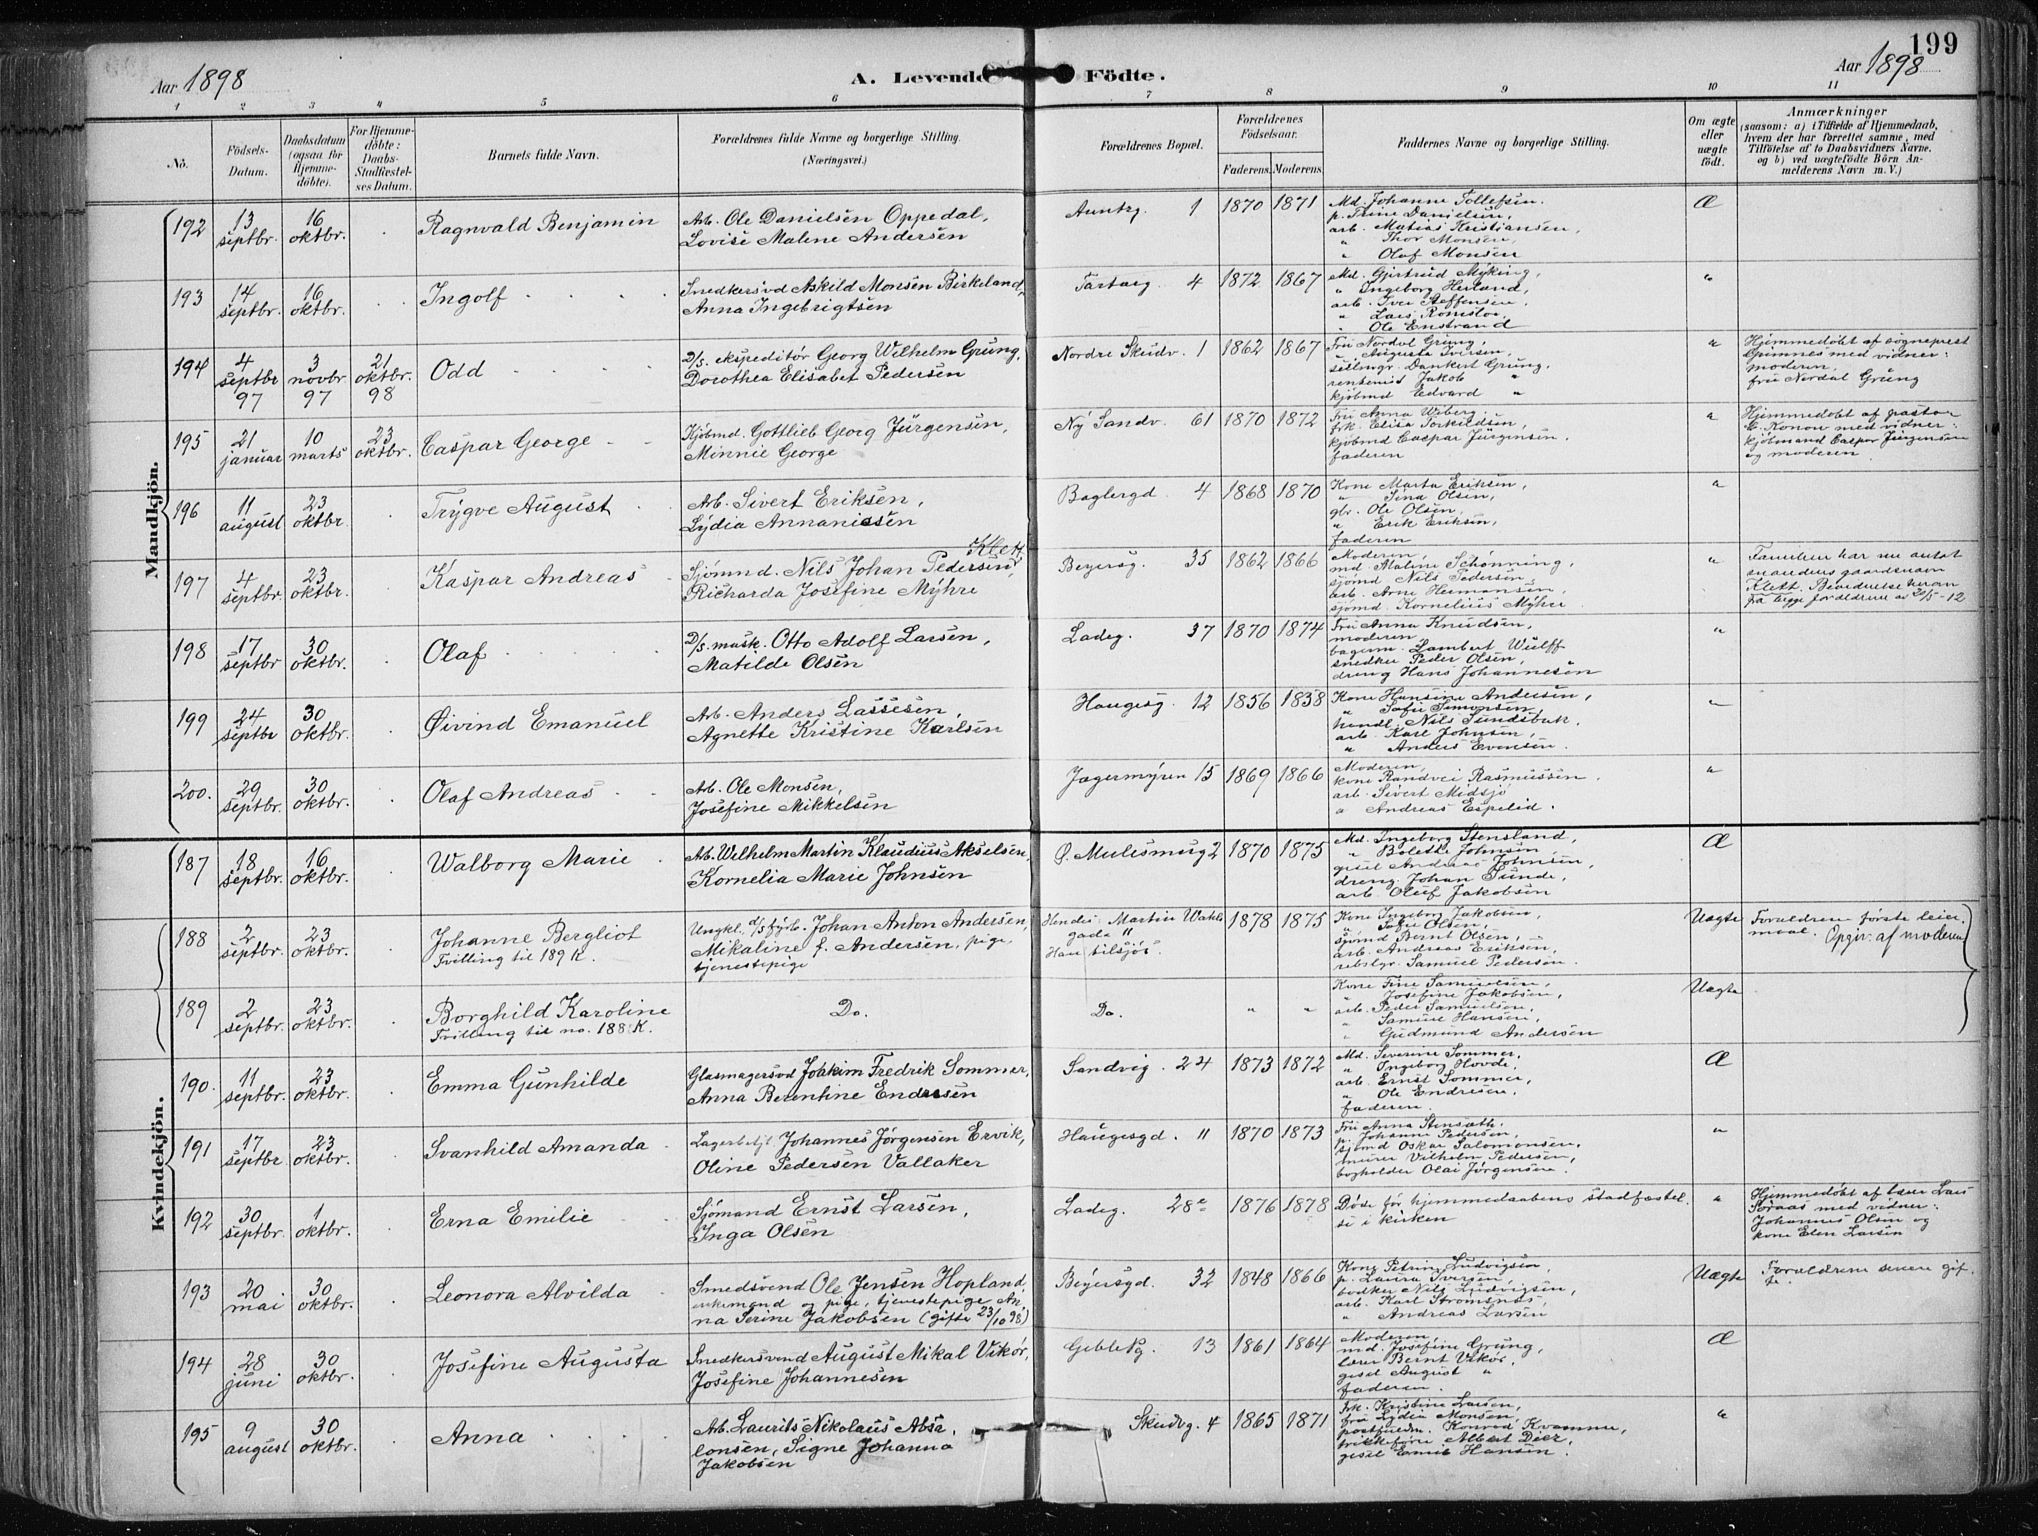 199
Aar 1898
A. Levende Födte.
Aar 1898
1 2 3 4 5 6 7 8 9 10 11
No.
Födsels-Datum.
Daabsdatum (ogsaa for Hjemmedöbte).
For Hjemmedöbte: Daabs-Stadfæstelses Datum.
Barnets fulde Navn.
Forældrenes fulde Navne og borgerlige Stilling. (Næringsvei.)
Forældrenes Bopæl.
Forældrenes Födselsaar.
Faderens. Moderens.
Faddernes Navne og borgerlige Stilling.
Om ægte eller uægte födt.
Anmærkninger
(saasom: a) i Tilfælde af Hjemmedaab, hvem der har forrettet samme, med Tilföielse af to Daabsvidners Navne. og b) ved uægtefödte Börn Anmelderens Navn m. V.)
Mandkjön.
192 13 septbr. 16 oktbr. Ragnvald Benjamin
Arb. Ole Danielsen Oppedal,
Lovise Malene Andersen
1 1870 1871
Md. Johanne Tollefsen.
p. Trine Danielsen,
arb. Matias Kristiansen,
" Thor Monsen,
" Olaf Monsen
Æ
193 14 septbr. 16 oktbr. Ingolf
Snedkersvd Askild Monsen Birkeland,
Anna Ingebrigtsen
4 1872 1867
Md. Gjertrud Myking,
" Ingeborg Herland,
arb. Iver Steffensen,
" Lars Romslo,
" Ole Enstrand
"
194 4 septbr 97 3 novbr 97 21 oktbr. 98 Odd
D/s. ekspeditör Georg Wilhelm Grung,
Dorothea Elisabet Pedersen
Nordre Skudv. 1 1862 1867
Fru Nordal Grung,
" Augusta Iversen,
Dankert Grung,
Jakob "
kjöbmd Edvard "
"
Hjemmedöbt af sogneprest
Grimnes med vidner:
moderen,
fru Nordal Grung
195 21 januar 10 marts 23 oktbr. Caspar George
Kjöbmd. Gottlieb Georg Jürgensen,
Minnie George
Ny Sandv. 61 1870 1872
Fru Anna Wiberg.
frk. Elisa Torkildsen,
kjöbmd Caspar Jürgensen.
faderen
"
Hjemmedöbt af pastor
C. Konow med vidner:
kjöbmand Caspar Jürgensen
og moderen
196 11 august 23 oktbr. Trygve August
Arb. Sivert Eriksen,
Lydia Annaniesen
Baglergd. 4 1868 1870
Kone Marta Eriksen,
" Sina Olsen,
gbr. Ole Olsen,
" Erik Eriksen,
faderen
"
197 4 septbr. 23 oktbr. Kaspar Andreas
Klett
Sjömnd. Nils Johan Pedersen,
Richarda Josefine Myhre
Beyersg. 35 1862 1866
Moderen,
md. Maline Schönning,
sjömd Nils Pedersen
arb. Arne Hermansen,
sjömd. Kornelius Myhre
"
Familien har nu antat
mandens gaardsnavn
Klett. Bevidnelse herom
fra begge forældrene av 20/5-12
198 17 septbr 30 oktbr. Olaf
D/s. mask. Otto Adolf Larsen,
Matilde Olsen
Ladeg. 37 1870 1874
Fru Anna Knudsen,
moderen
bagerm. Lambert Wulff
snedker Peder Olsen,
dreng Hans Johannesen
"
199 24 septbr 30 oktbr. Øivind Emanuel
Arb. Anders Lassesen,
Agnette Kristine Karlsen
Haugesg 12 1856 1858
Kone Hansine Andersen,
" Sofie Simonsen
handl. Nils Sundsbak,
arb. Karl Johnsen,
" Anders Evensen.
"
200. 29 septbr. 30 oktbr. Olaf Andreas
Arb. Ole Monsen,
Josefine Mikkelsen
Jægermyren 15 1869 1866
Moderen,
kone Randvei Rasmussen.
arb. Sivert Midsjö
" Andreas Espelid.
"
Kvindekjön.
187 18 septbr. 16 oktbr. Walborg Marie
Arb. Wilhelm Martin Klaudius Akselsen,
Kornelia Marie Johnsen
Ø. Mulesmug 2 1870 1875
Md. Ingeborg Stensland,
" Bolette Johnsen
Andreas Johnsen,
dreng Johan Sunde,
arb. Oluf Jakobsen
Æ
188 2 septbr. 23 oktbr. Johanne Bergliot
Tvilling til 189 K.
Ungkl. d/s fyrb. Johan Anton Andersen,
Mikaline f. Andersen, pige,
tjenestepige
Hendes: Martin Wahls gade 11
Han tilsjös
1878 1875
Kone Ingeborg Jakobsen,
" Sofie Olsen,
sjömd Bernt Olsen,
arb. Andreas Eriksen,
rebslgr. Samuel Pedersen.
Uægte
Forældrene förste leiermaal. Opgiv. af moderen
189 2 septbr. 23 oktbr. Borghild Karoline
Tvilling til no. 188 K.
Do. Do. " "
Kone Tine Samuelsen,
" Josefine Jakobsen,
arb. Peder Samuelsen,
" Samuel Hansen,
" Gudmund Andersen
Uægte
190. 11 septbr. 23 oktbr. Emma Gunhilde
Glasmagersvd Joakim Fredrik Sommer,
Anna Berentine Endresen
Sandvig. 24 1873 1872
Md. Severine Sommer,
" Ingeborg Hovde,
arb. Ernst Sommer,
" Ole Endresen,
faderen.
Æ
191 17 septbr 23 oktbr. Svanhild Amanda
Lagerbetjt. Johannes Jørgensen Ervik,
Oline Pedersen Vallaker
Haugesgd. 11 1870 1873
Fru Anna Stensæth,
p. Johanne Pedersen,
sjömd Oskar Salomonsen,
murer Vilhelm Pedersen,
bogholder Olai Jørgensen.
"
192 30 septbr. 1 oktbr. Erna Emilie
Sjömand Ernst Larsen,
Inga Olsen
Ladeg. 28e 1876 1878
Döde för hjemmedaabens stadfæstelse
i kirken
"
Hjemmedöbt af lærer Lars
Soraas med vidner:
Johannes Olsen og
kone Elen Larsen
193 20 mai 30 oktbr. Leonora Alvilda
Smedsvend Ole Jensen Hopland,
enkemand og pige, tjenestepige An
na Serine Jakobsen (gifte 23/10 98)
Beyersgd. 32 1848 1866
Kone Petrine Ludvigsen,
p. Laura Iversen,
bødker Nils Ludvigsen,
arb. Karl Strømsnes,
" Andreas Larsen
Uægte
Forældrene senere gifte.
194 28 juni 30 oktbr. Josefine Augusta
Snedkersvend August Mikal Vikör,
Josefine Johannesen
13 1861 1864
Moderen
md. Josefine Grung,
lærer Bernt Vikör,
August "
faderen.
Æ
195 9 august 30 oktbr. Anna
Arb. Laurits Nikolaus Absa
lonsen, Signe Johanna
Jakobsen
Skudvg. 4 1865 1871
Frk. Kristine Larsen,
fru Lydia Monsen,
Konrad Kvamme,
Albert Dier,
Emil Hansen.
"